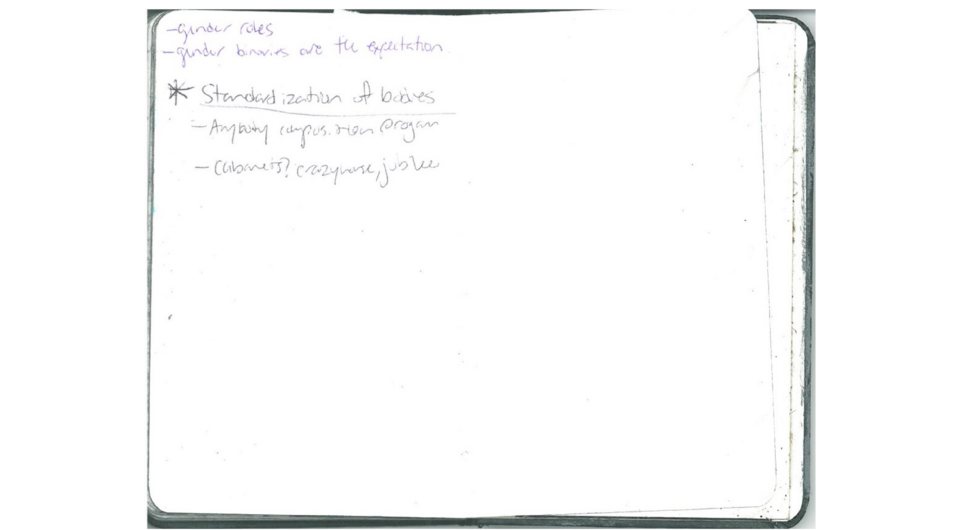 -gender roles
-gender binaries are the expectation
* Standardization of bodies
- Anybody composition program
- Cabarets? crazyhorse, jubilee